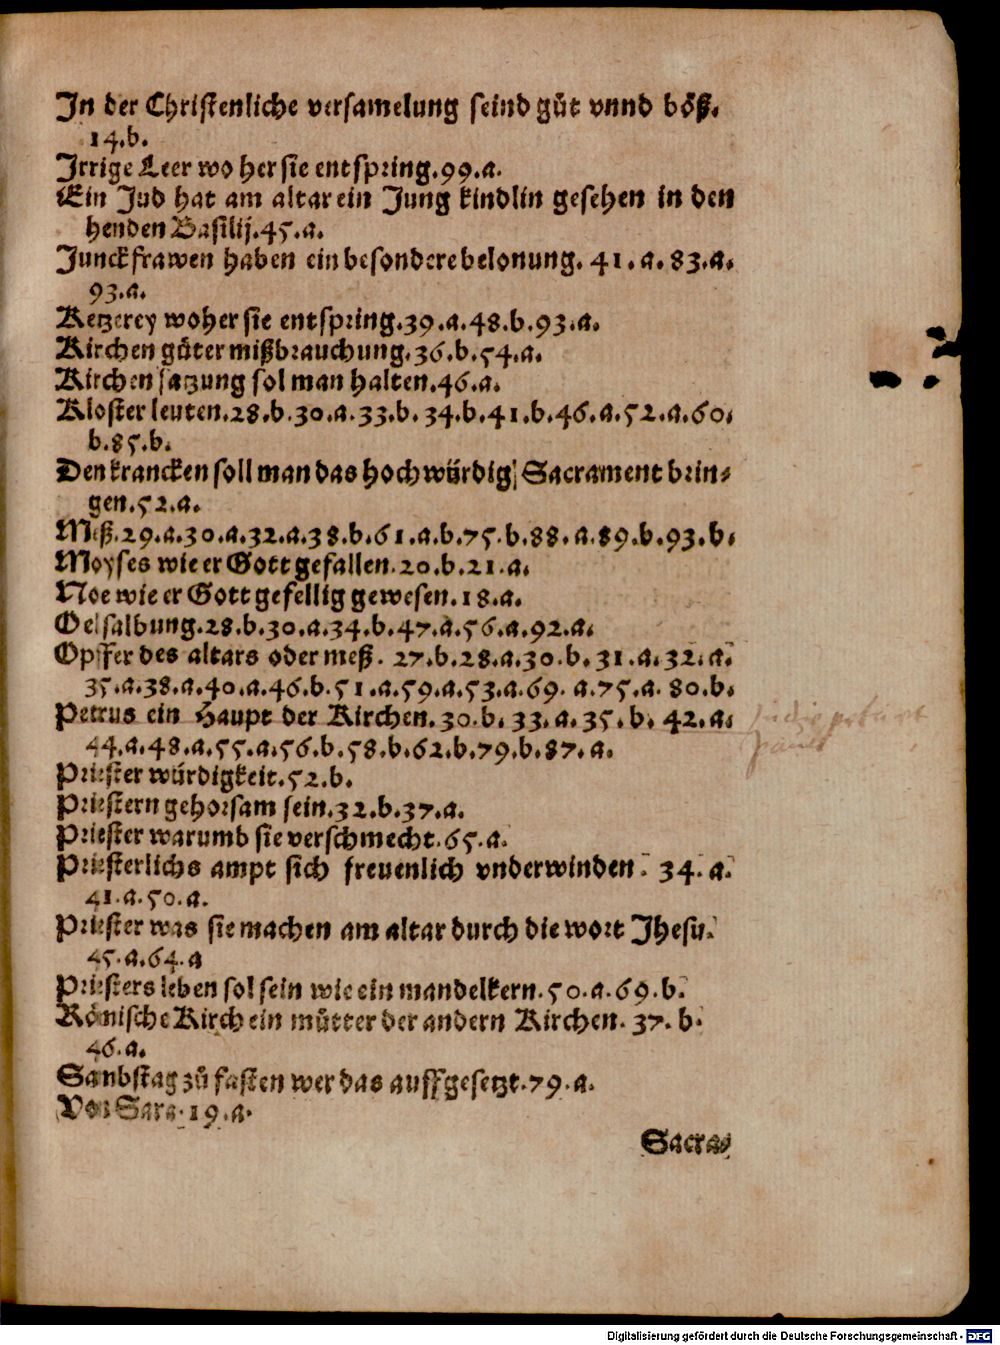 In der Christenliche versamelung seind gůt vnnd böß.
14.b.
Irrige Leer wo her sie entspring.99.a.
Ein Jud hat am altar ein Jung kindlin gesehen in den
henden Basilij.45.a.
Junckfrawen haben ein besondere belonung. 41.a. 83.a.
93.a.
Ketzerey woher sie entspring.39.a.48.b.93.a.
Kirchen gůter mißbrauchung.36.b.54.a.
Kirchen satzung sol man halten.46.a.
Kloster leuten.28.b.30.a.33.b.34.b.41.b.46.a.52.a.60.
b.85.b.
Den krancken soll man das hochwürdig Sacrament brin⸗
gen.52.a.
Meß.29.a.30.a.32.a.38.b.61.a.b.75.b.88.a.89.b.93.b.
Moyses wie er Gott gefallen.20.b.21.a.
Noe wie er Gott gefellig gewesen.18.a.
Oelsalbung.28.b.30.a.34.b.47.a.56.a.92.a.
Opffer des altars oder meß. 27.b.28.a.30.b.31.a.32.a.
35.a.38.a.40.a.46.b.51.a.59.a.53.a.69.a.75.a.80.b.
Petrus ein Haupt der Kirchen.30.b.33.a.35.b.42.a.
44.a.48.a.55.a.56.b.58.b.62.b.79.b.87.a.
Priester würdigkeit.52.b.
Priestern gehorsam sein.32.b.37.a.
Priester warumb sie verschmecht.65.a.
Priesterlichs ampt sich freuenlich vnderwinden. 34.a.
41.a.50.a.
Priester was sie machen am altar durch die wort Jhesu.
45.a.64.a
Priesters leben sol sein wie ein mandelkern.50.a.69.b.
Römische Kirch ein můtter der andern Kirchen. 37.b.
46.a.
Sanbstag zů fasten wer das auffgesetzt.79.a.
Von Sara.19.a.
Sacra⸗
Digitalisierung gefördert durch die Deutsche Forschungsgemeinschaft - DFG